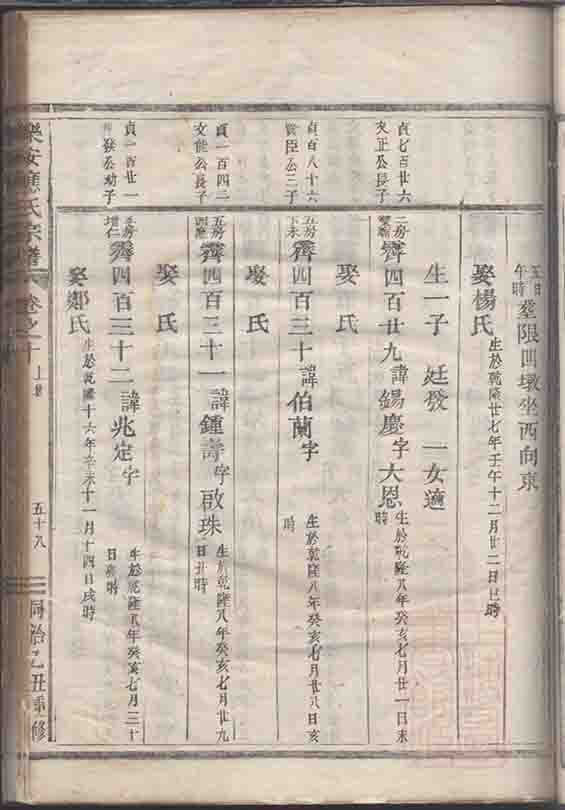 五日午時
葬限凹墩坐西向東
娶楊氏
生於乾隆廿七年壬午十二月廿二日巳時
生一子 廷發 一女適
貞七百廿六
文正公長子
二房
霽四百廿九諱錫慶字大恩
生於乾隆八年癸亥七月廿一日未時
娶氏
貞百八十六
臣公三子
五房
霽四百三十諱伯蘭字
生於乾隆八年癸亥七月廿八日亥時
娶氏
貞一百四二
文能公長子
五房
霽四百三十一諱鍾壽字啟珠
生於乾隆八年癸亥七月廿九日丑時
娶氏
貞一百廿一
發公幼子
房
增仁
霽四百三十二諱兆定字
生於乾隆八年癸亥七月三十日 時
娶鄭氏
生於乾隆十六年辛未十一月十四日戌時
樂安 氏宗譜 卷之十 上
五十八
同治乙丑重修